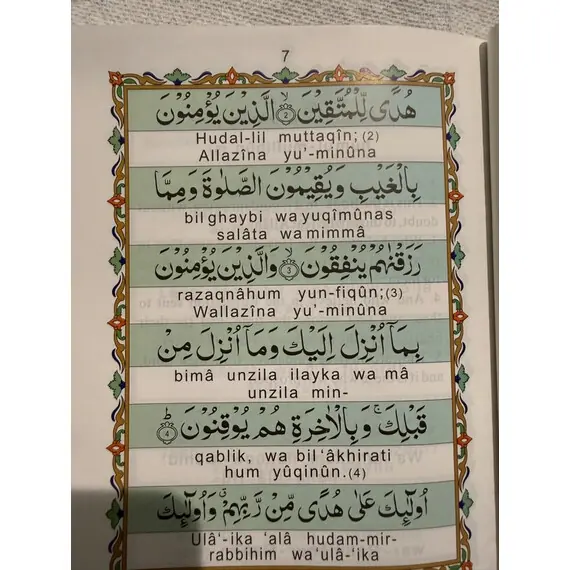 7
هُدًى لِّلْمُتَّقِيْنَ ۙ‏ ﴿2﴾ الَّذِيْنَ يُؤْمِنُوْنَ
Hudal-lil muttaqîn; (2)
Allazîna yu’-minûna
بِالْغَيْبِ وَيُقِيْمُوْنَ الصَّلٰوةَ وَمِمَّا
bil ghaybi wa yuqîmûnas
salâta wa mimmâ
رَزَقْنٰهُمْ يُنْفِقُوْنَ ۙ‏ ﴿3﴾ وَالَّذِيْنَ يُؤْمِنُوْنَ
razaqnâhum yun-fiqûn;(3)
Wallazîna yu’-minûna
بِمَآ اُنْزِلَ اِلَيْكَ وَمَآ اُنْزِلَ مِنْ
bimâ unzila ilayka wa mâ
unzila min-
قَبْلِكَ ۚ وَبِالْاٰخِرَةِ هُمْ يُوْقِنُوْنَ ؕ ﴿4﴾
qablik, wa bil ‘âkhirati
hum yûqinûn.(4)
اُولٰٓئِكَ عَلٰى هُدًى مِّنْ رَّبِّهِمْ ۙ وَاُولٰٓئِكَ
Ulâ‘-ika ‘alâ hudam-mir-
rabbihim wa ‘ulâ-‘ika